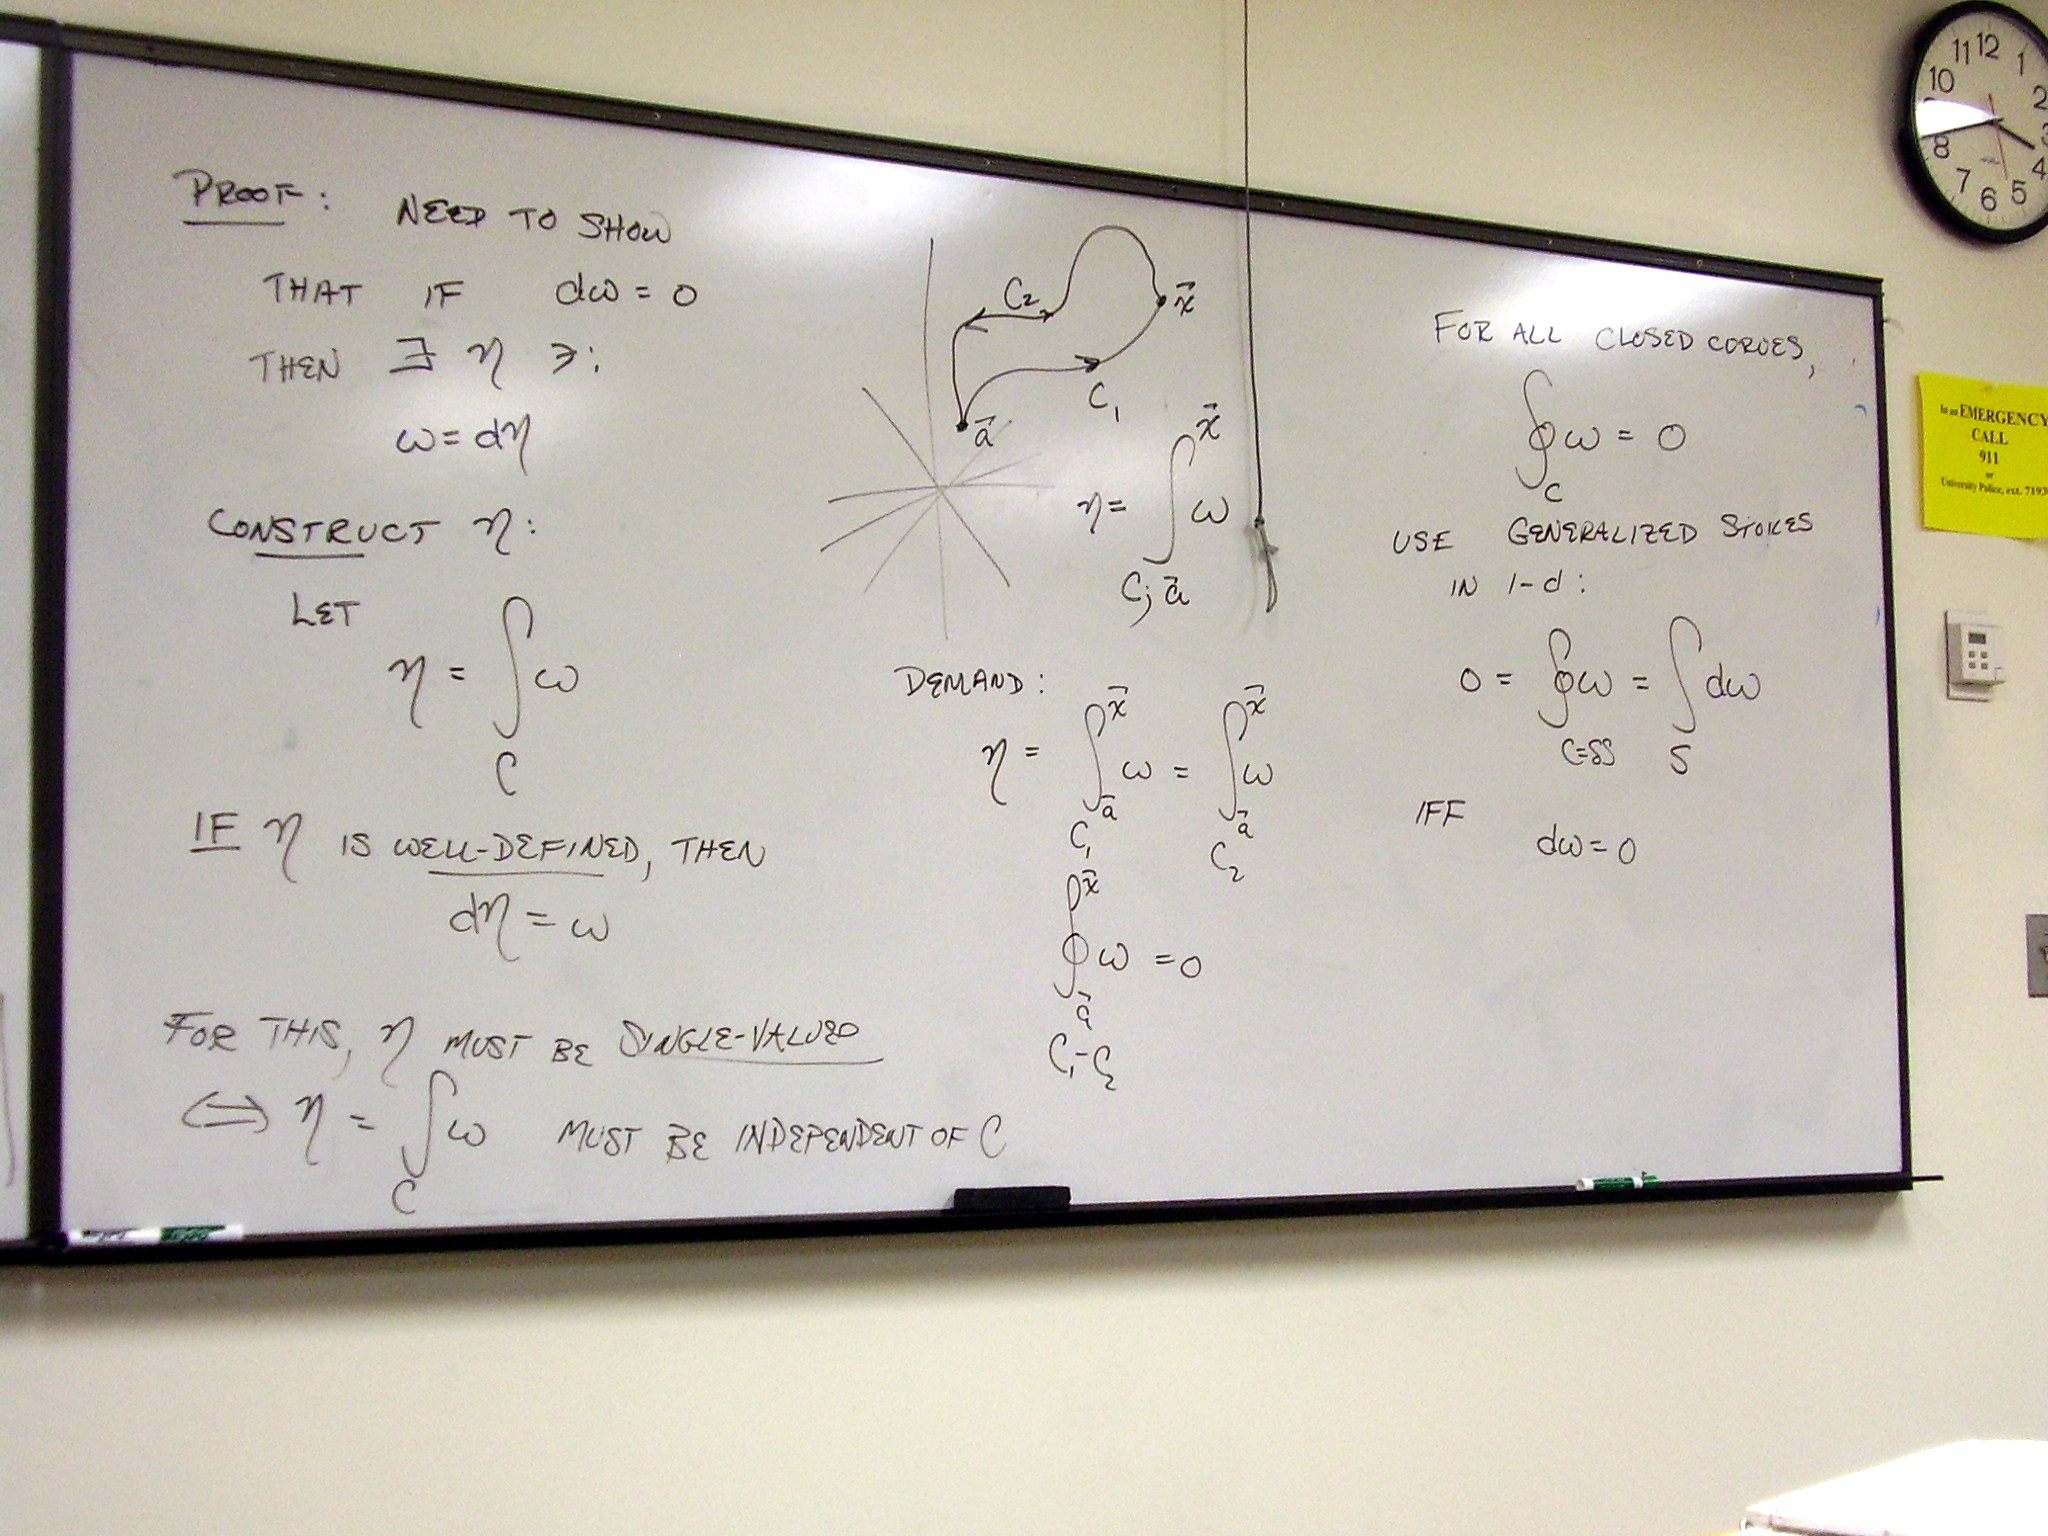 PROOF: NEED TO SHOW
THAT IF dω = 0
THEN ∃ η ∋:
ω = dη
CONSTRUCT η:
LET
η = ∫ ω
C
IF η IS WELL-DEFINED, THEN
dη = ω
FOR THIS, η MUST BE SINGLE-VALUED
⟺ η = ∫ ω MUST BE INDEPENDENT OF C
C
C₂
x⃗
C₁
a⃗
x⃗
η = ∫ ω
C; a⃗
DEMAND:
x⃗ x⃗
η = ∫ ω = ∫ ω
a⃗ a⃗
C₁ C₂
x⃗
∮ ω = 0
a⃗
C₁-C₂
FOR ALL CLOSED CURVES,
∮ ω = 0
C
USE GENERALIZED STOKES
IN 1-d:
0 = ∮ ω = ∫ dω
C=δS S
IFF
dω = 0
11 12 1
10 2
3
8 4
7 6 5
In an EMERGENCY
CALL
911
or
University Police, ext. 7193